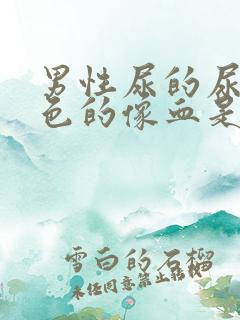 男性尿的尿
色的像血是
雪白的石榴
未经同意禁止转载